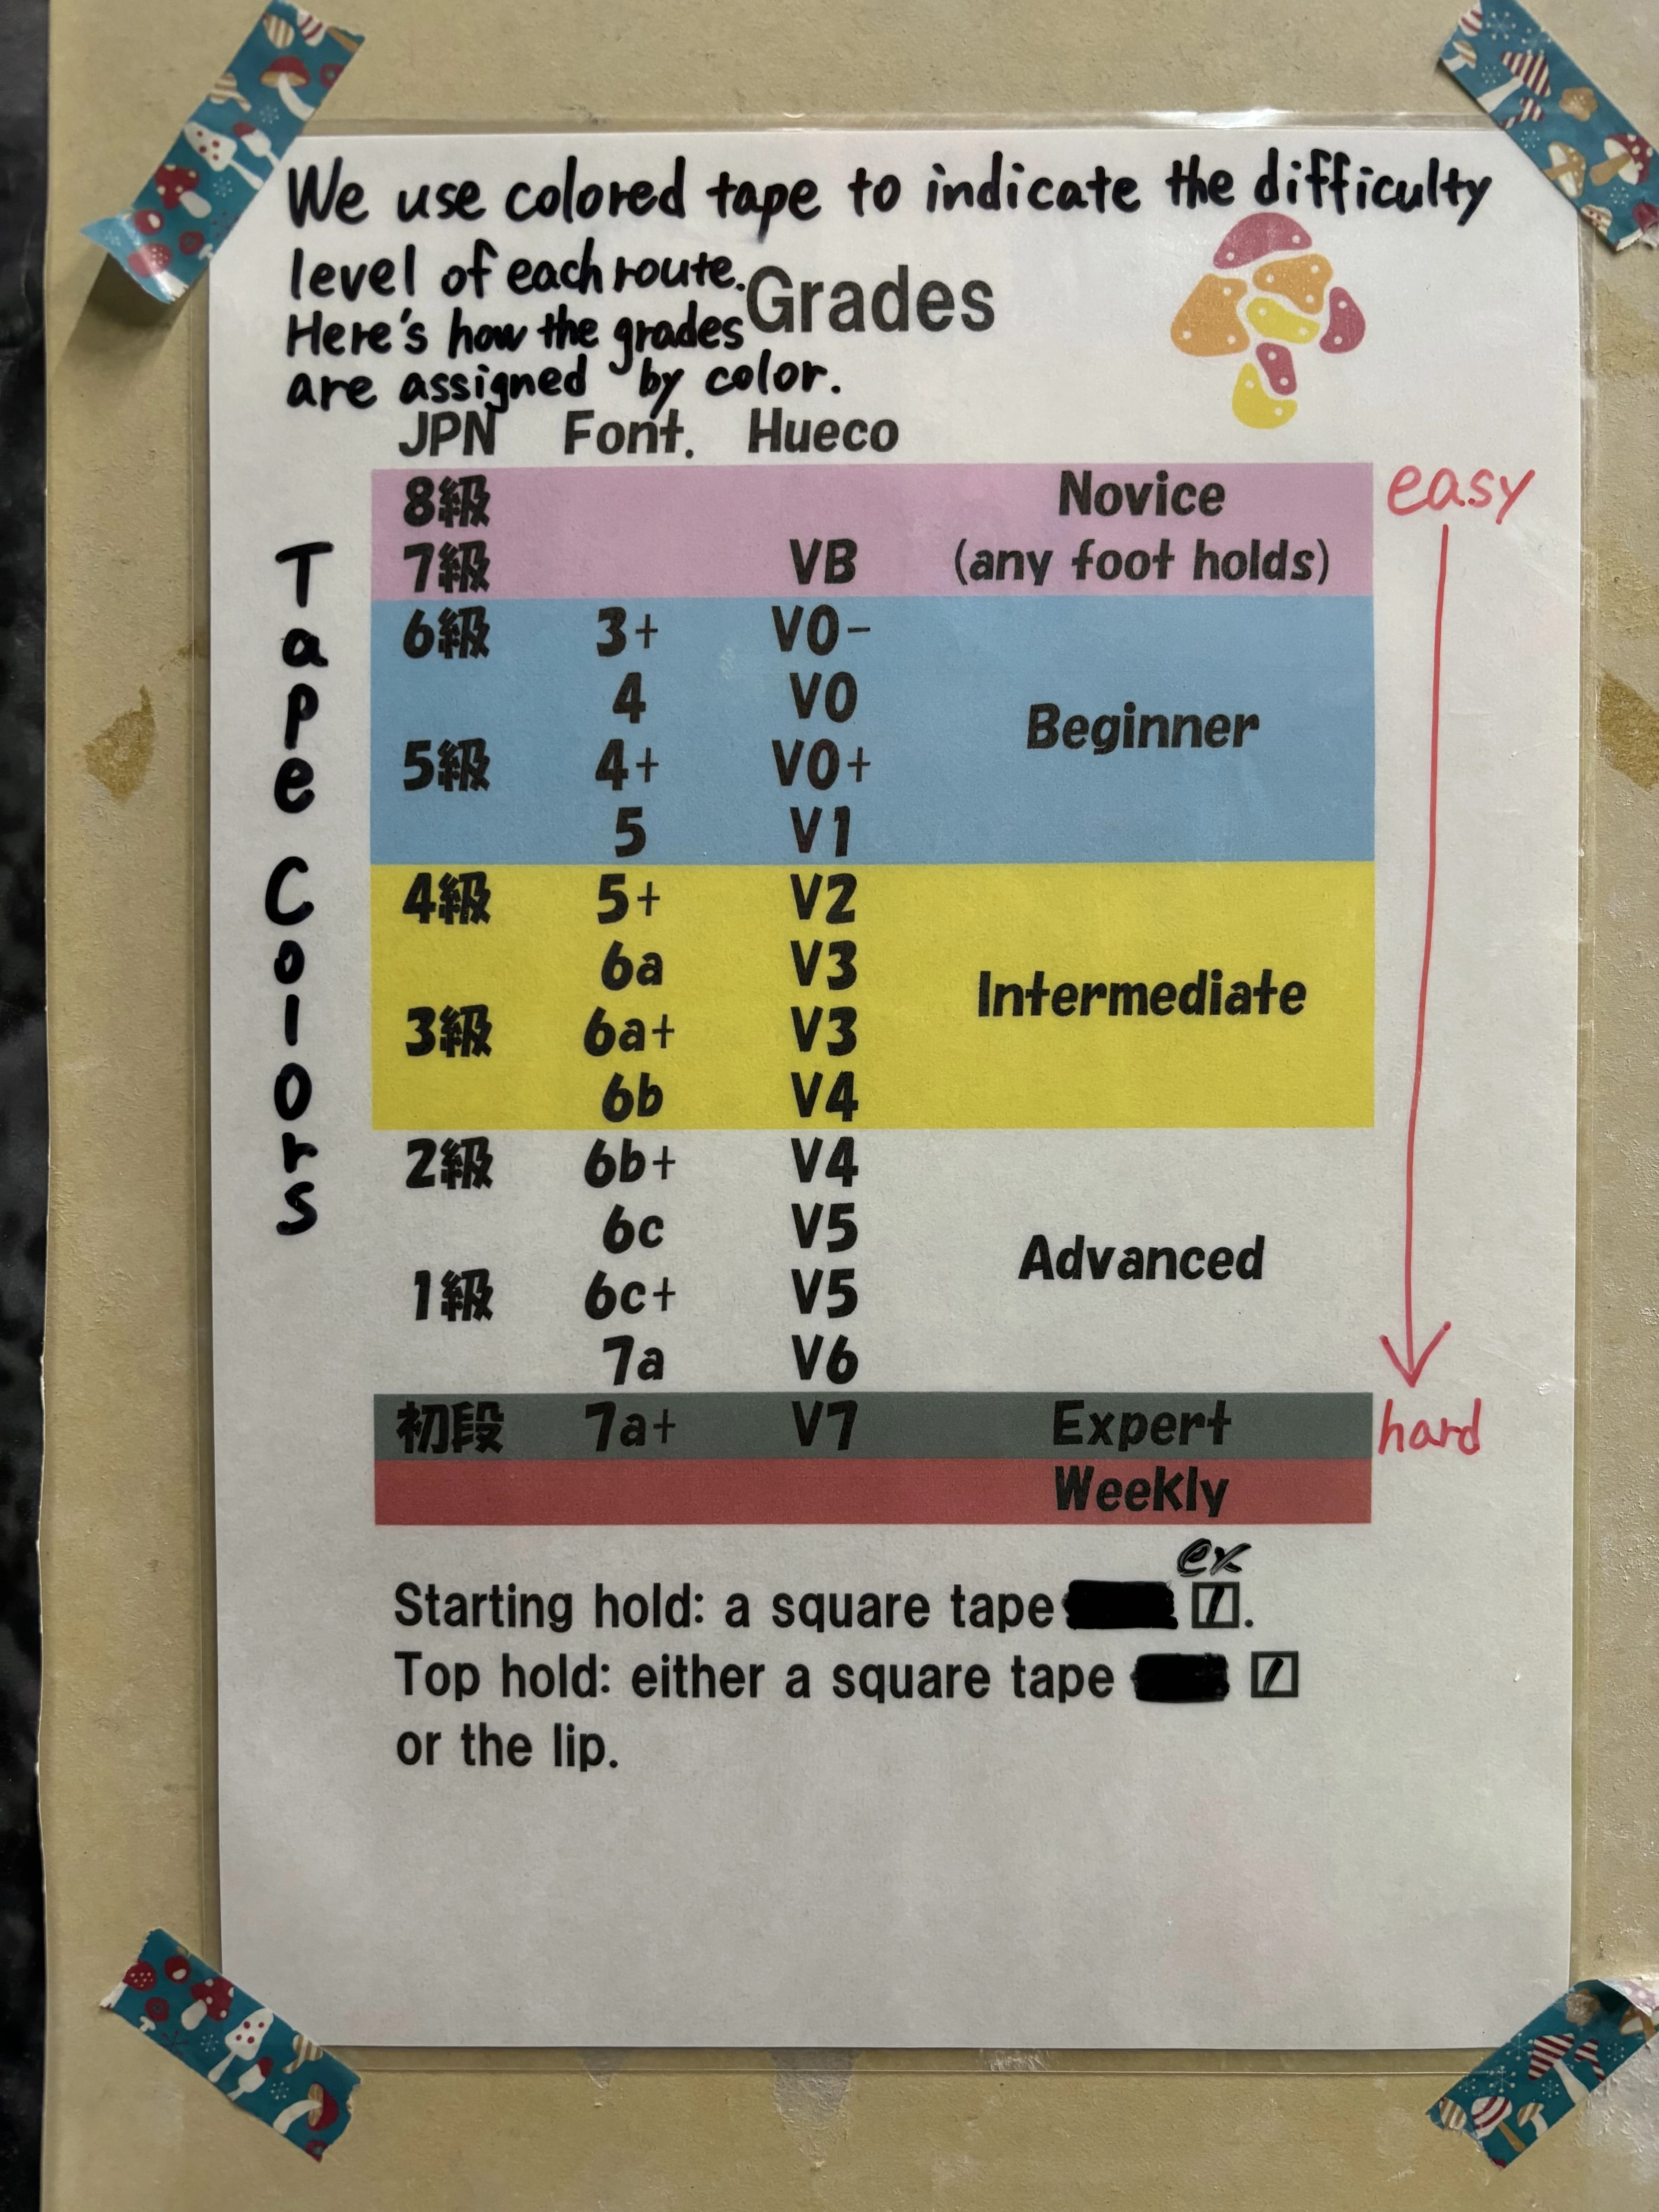 We use colored tape to indicate the difficulty
level of each route.
Grades
Here's how the grades
are assigned by color.
JPN Font. Hueco
Tape Colors
8級 Novice
7級 VB (any foot holds)
6級 3+ V0-
4 V0
Beginner
5級 4+ V0+
5 V1
4級 5+ V2
6a V3
Intermediate
3級 6a+ V3
6b V4
2級 6b+ V4
6c V5
Advanced
1級 6c+ V5
7a V6
初段 7a+ V7 Expert
Weekly
easy
hard
ex
Starting hold: a square tape [/].
Top hold: either a square tape [/]
or the lip.